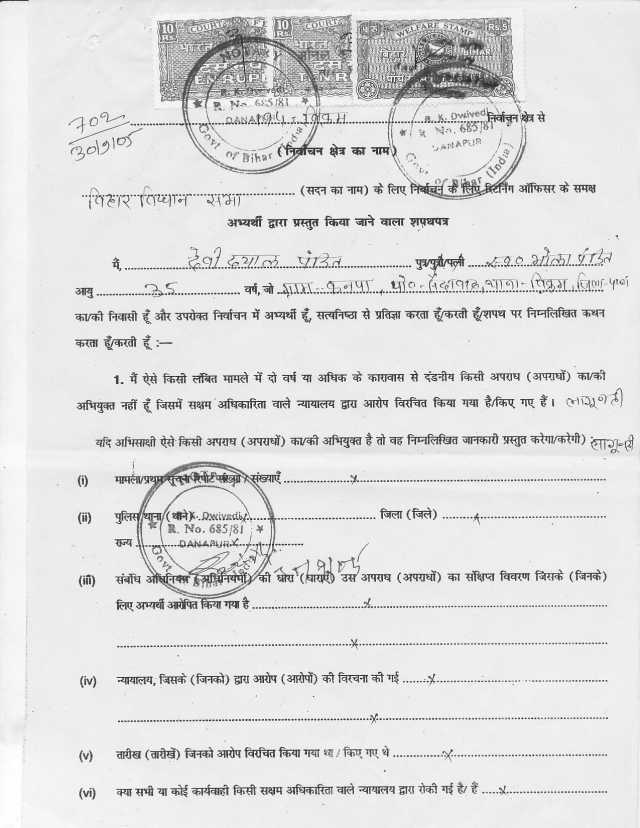 10 Rs. COURT FEE 10 Rs. COURT FEE WELFARE STAMP Rs.5
भारत भारत बिहार BIHAR
TEN RUPEES TEN RUPEES
NOTARY
R. K. Dwivedi
R. No. 685/81
DANAPUR
Govt of Bihar (India)
R. K. Dwivedi
No. 685/81
DANAPUR
Govt of Bihar (India)
702
30/9/05
विक्रम निर्वाचन क्षेत्र से
(निर्वाचन क्षेत्र का नाम)
बिहार विधान सभा (सदन का नाम) के लिए निर्वाचन के लिए रिटर्निंग ऑफिसर के समक्ष
अभ्यर्थी द्वारा प्रस्तुत किया जाने वाला शपथपत्र
मैं, देवी दयाल पंडित पुत्र/पुत्री/पत्नी स्व० भोला पंडित
आयु 35 वर्ष, जो ग्राम-कनपा, पो०- थाना-विक्रम, जिला-पटना
का/की निवासी हूँ और उपरोक्त निर्वाचन में अभ्यर्थी हूँ, सत्यनिष्ठा से प्रतिज्ञा करता हूँ/करती हूँ/शपथ पर निम्नलिखित कथन
करता हूँ/करती हूँ :—
1. मैं ऐसे किसी लंबित मामले में दो वर्ष या अधिक के कारावास से दंडनीय किसी अपराध (अपराधों) का/की
अभियुक्त नहीं हूँ जिसमें सक्षम अधिकारिता वाले न्यायालय द्वारा आरोप विरचित किया गया है/किए गए हैं । लागू नहीं
यदि अभिसाक्षी ऐसे किसी अपराध (अपराधों) का/की अभियुक्त है तो वह निम्नलिखित जानकारी प्रस्तुत करेगा/करेगी) लागू नहीं
(i) मामला/प्रथम सूचना रिपोर्ट संख्या / संख्याएँ x
(ii) पुलिस थाना (थाने) x जिला (जिले) x
राज्य x
NOTARY
R. K. Dwivedi
R. No. 685/81
DANAPUR
Govt of Bihar (India)
(iii) संबंधि अधिनियम (अधिनियमों) की धारा (धाराएँ) उस अपराध (अपराधों) का संक्षिप्त विवरण जिसके (जिनके)
लिए अभ्यर्थी आरोपित किया गया है x
x
(iv) न्यायालय, जिसके (जिनको) द्वारा आरोप (आरोपों) की विरचना की गई x
x
(v) तारीख (तारीखें) जिनको आरोप विरचित किया गया था / किए गए थे x
(vi) क्या सभी या कोई कार्यवाही किसी सक्षम अधिकारिता वाले न्यायालय द्वारा रोकी गई है/ हैं x